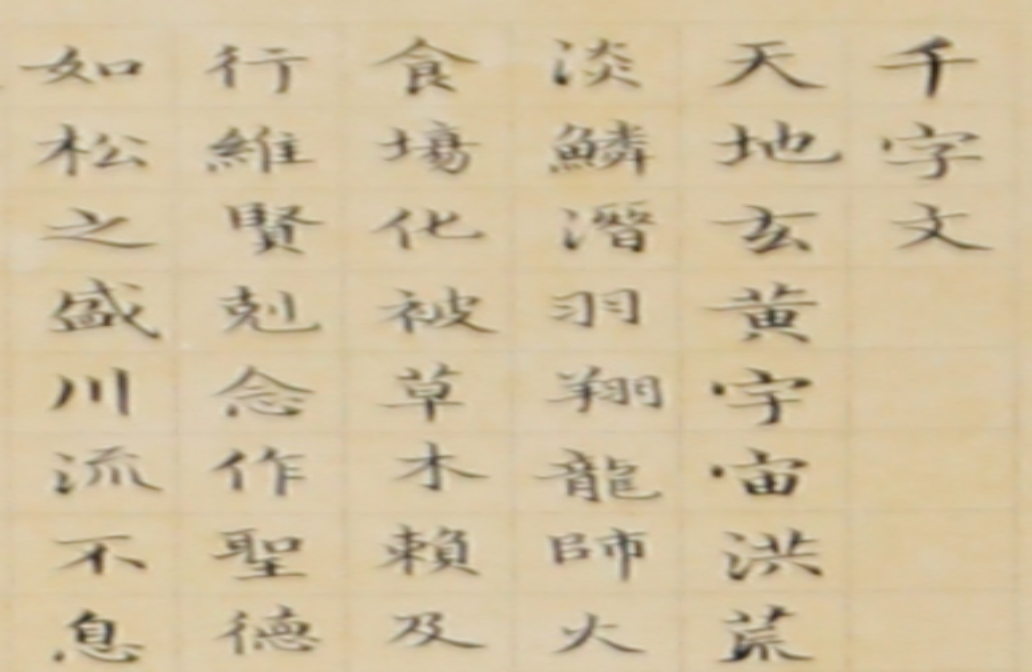 千字文
天地玄黄宇宙洪荒
淡鱗潛羽翔龍師火
食場化被草木賴及
行維賢剋念作聖德
如松之盛川流不息